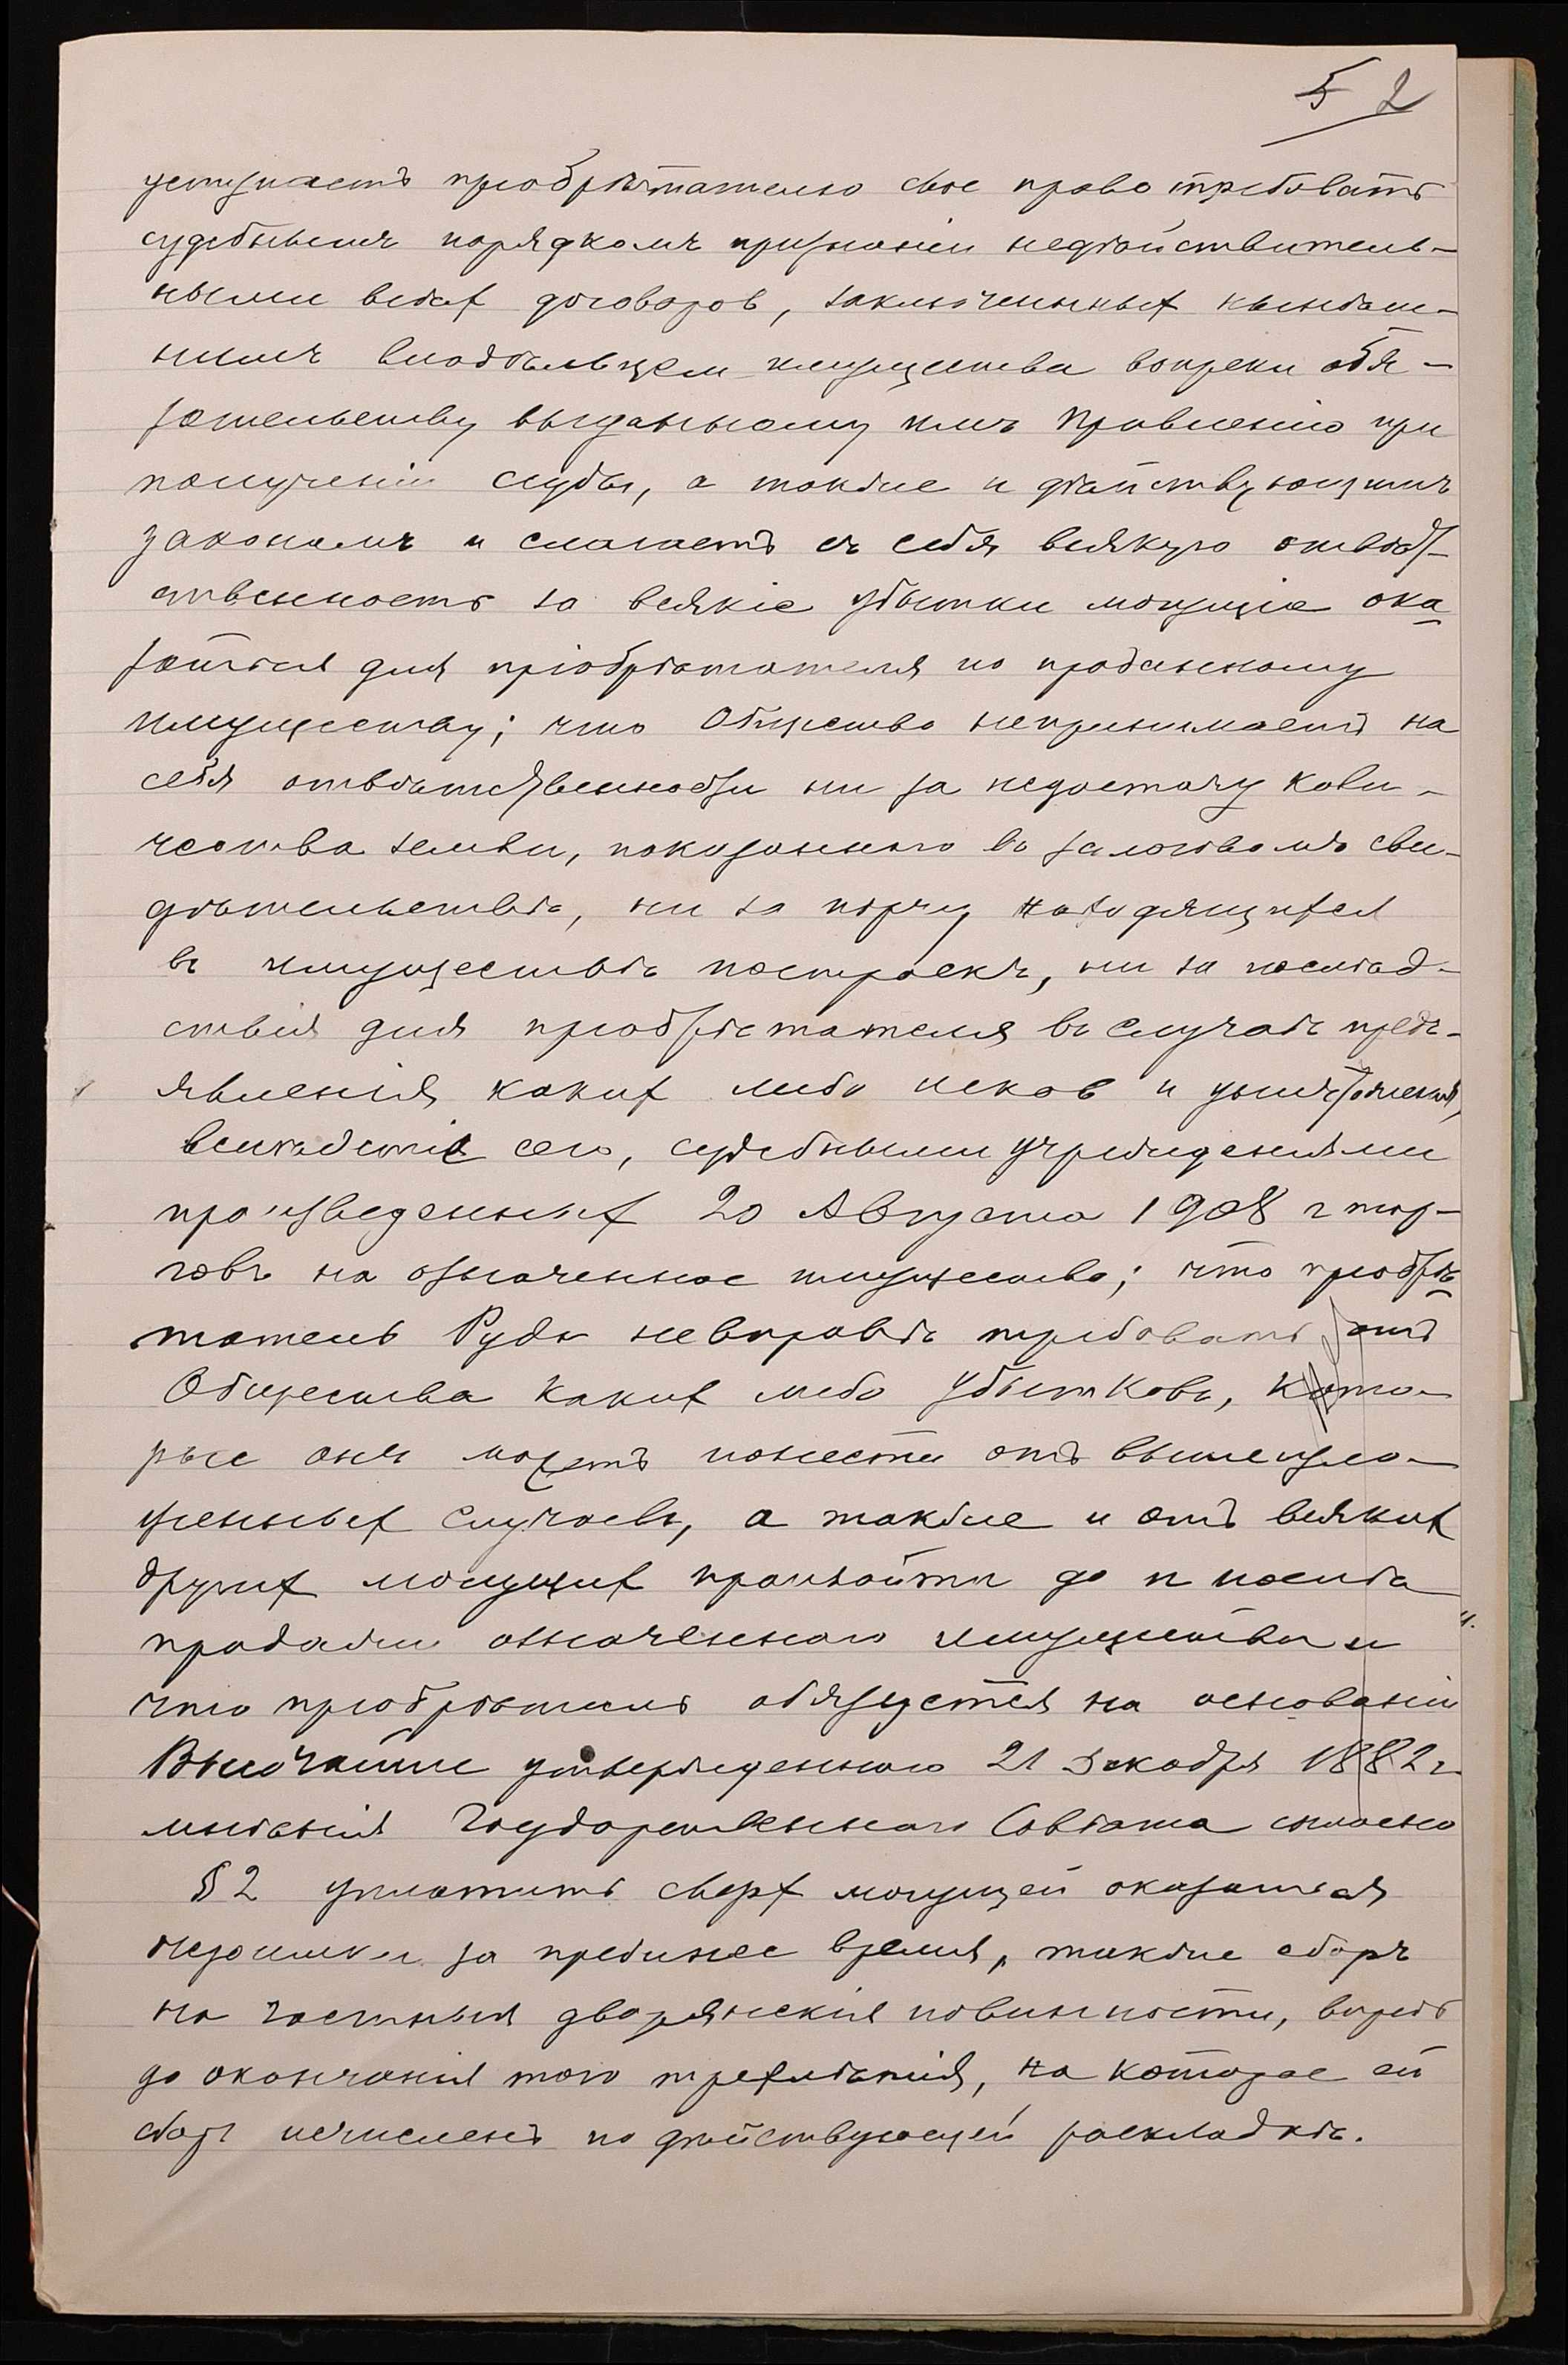 5 2
уступаетъ пріобрѣтателю свое право требовать
судебнымъ порядкомъ признанія недѣйствитель-
ными всѣхъ договоров, заключенных нынѣш-
нимъ владѣльцем имущества вопреки обя-
зательству выданному имъ Правленію при
полученіи ссуды, а также и дѣйствующимъ
законамъ и слагаетъ съ себя всякую отвѣт-
ственность за всякіе убытки могущіе ока
заться для пріобрѣтателя по проданному
имуществу; что Общество непринимаетъ на
себя отвѣтственности ни за недостачу коли-
чества земли, показаннаго въ залоговомъ сви-
дѣтельствѣ, ни за порчу находящихся
въ имуществѣ построекъ, ни за послѣд-
ствія для пріобрѣтателя въ случаѣ предъ-
явленія каких либо исков и уничтоженія,
вслѣдствіе сего, судебными учрежденіями
произведенных 20 Августа 1908 г тор-
говъ на означенное имущество; что пріобрѣ
татель Рудь невправѣ требовать отъ
Общества каких либо убытковъ, кото-
рые онъ можетъ понести отъ вышеизло-
женных случаевъ, а также и отъ всяких
других могущих произойти до и послѣ
продажи означеннаго имущества и
что пріобрѣтатель обязуется на основаніи
Высочайше утвержденнаго 21 Декабря 1882 г
мнѣнія Государственнаго Совѣта согласно
§ 2 уплатить сверх могущей оказаться
недоимки за прежнее время, также сборъ
на частныя дворянскія повинности, впредь
до окончанія того трехлѣтія, на которое сей
сборъ исчисленъ по дѣйствующей раскладкѣ.